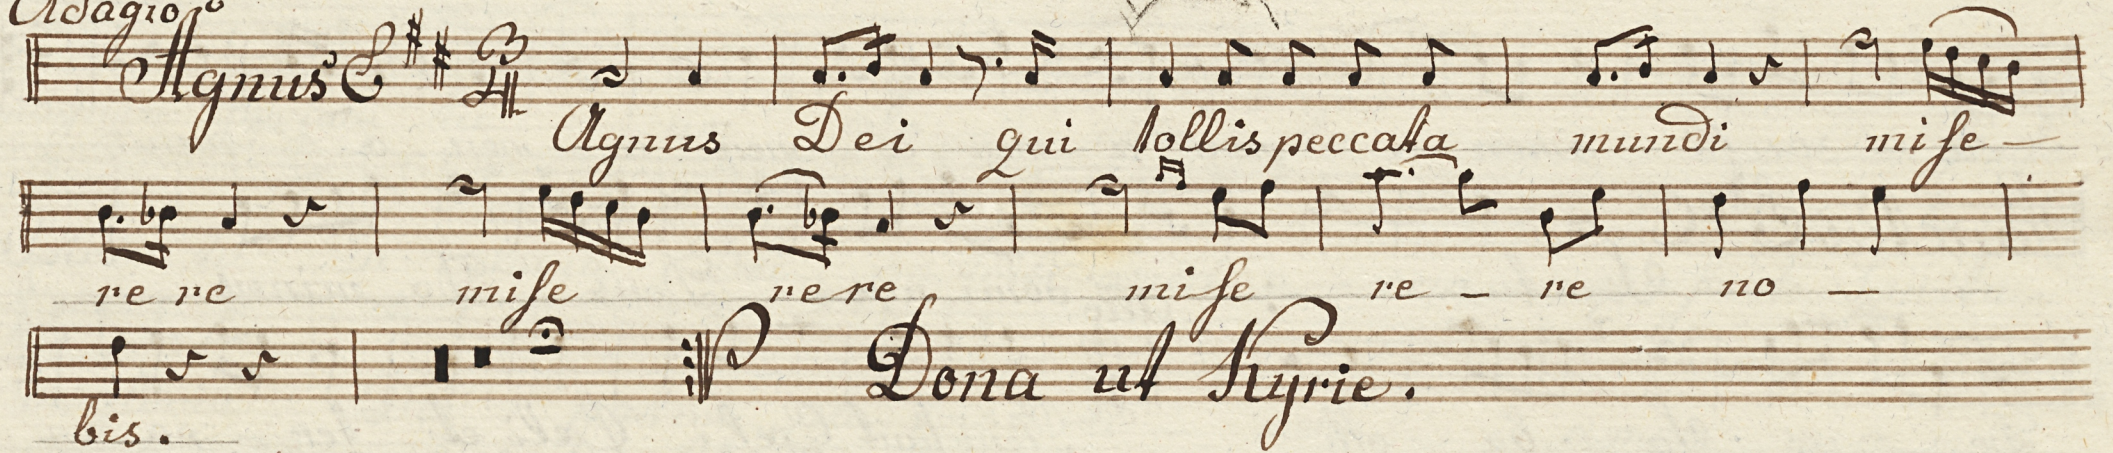 Adagio
Agnus
3
4
Agnus Dei qui tollis peccata mundi miſe —
re re miſe re re miſe re — re no —
Dona ut Kyrie.
bis.